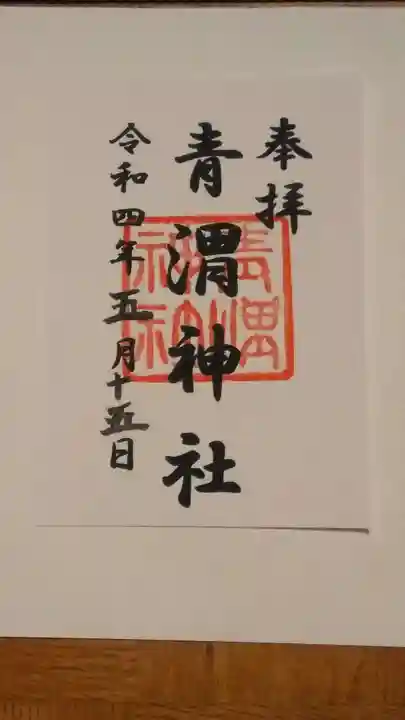 奉拝
青渭神社
令和四年五月十五日
青渭
神社